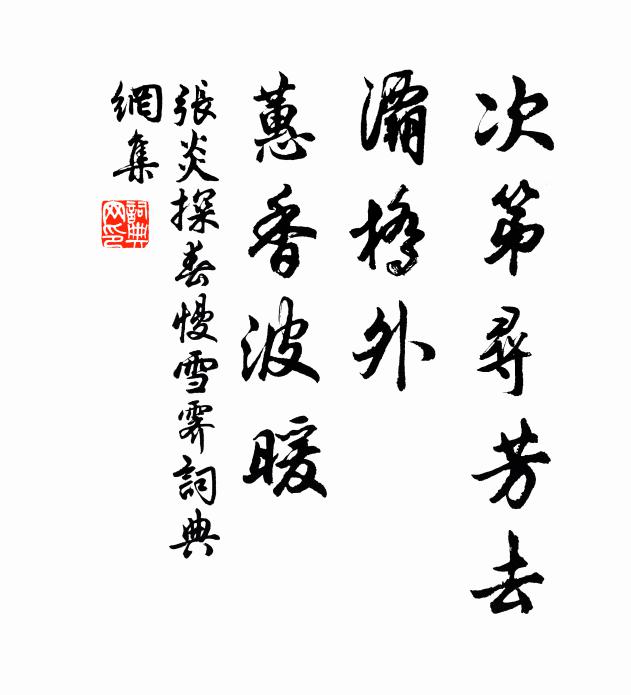 次第尋芳去
灞橋外
蕙香波暖
張炎探春慢雪霽詞典
網集
詞典
网印